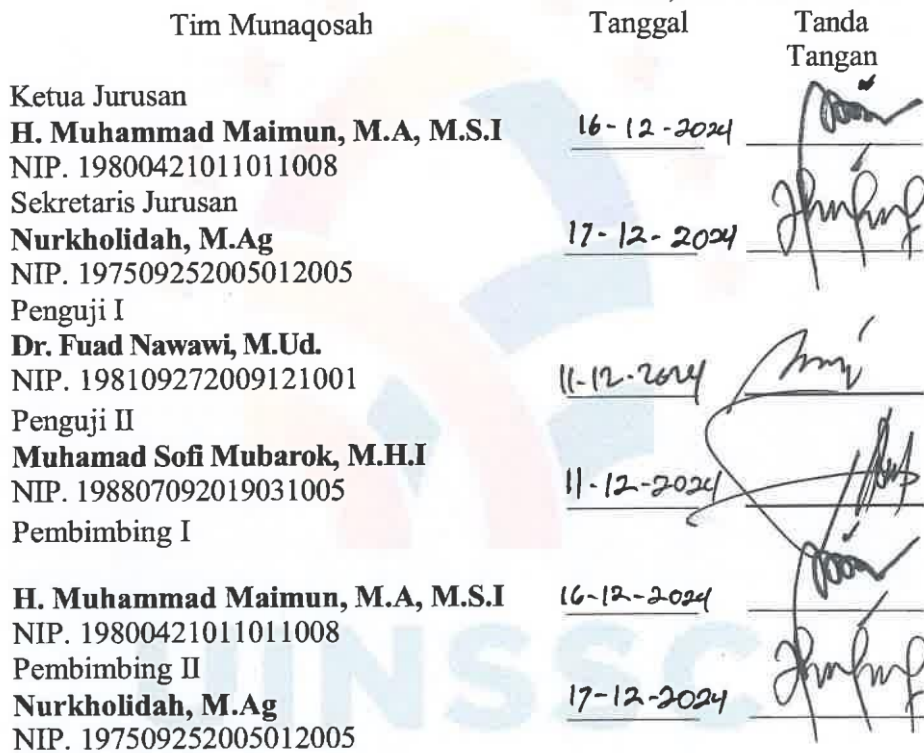 Tim Munaqosah Tanggal Tanda
Tangan
Ketua Jurusan
H. Muhammad Maimun, M.A, M.S.I 16-12-2024
NIP. 19800421011011008
Sekretaris Jurusan
Nurkholidah, M.Ag 17-12-2024
NIP. 197509252005012005
Penguji I
Dr. Fuad Nawawi, M.Ud.
NIP. 198109272009121001 11-12-2024
Penguji II
Muhamad Sofi Mubarok, M.H.I
NIP. 198807092019031005 11-12-2024
Pembimbing I
H. Muhammad Maimun, M.A, M.S.I 16-12-2024
NIP. 19800421011011008
UINSSC
Pembimbing II
Nurkholidah, M.Ag 17-12-2024
NIP. 197509252005012005